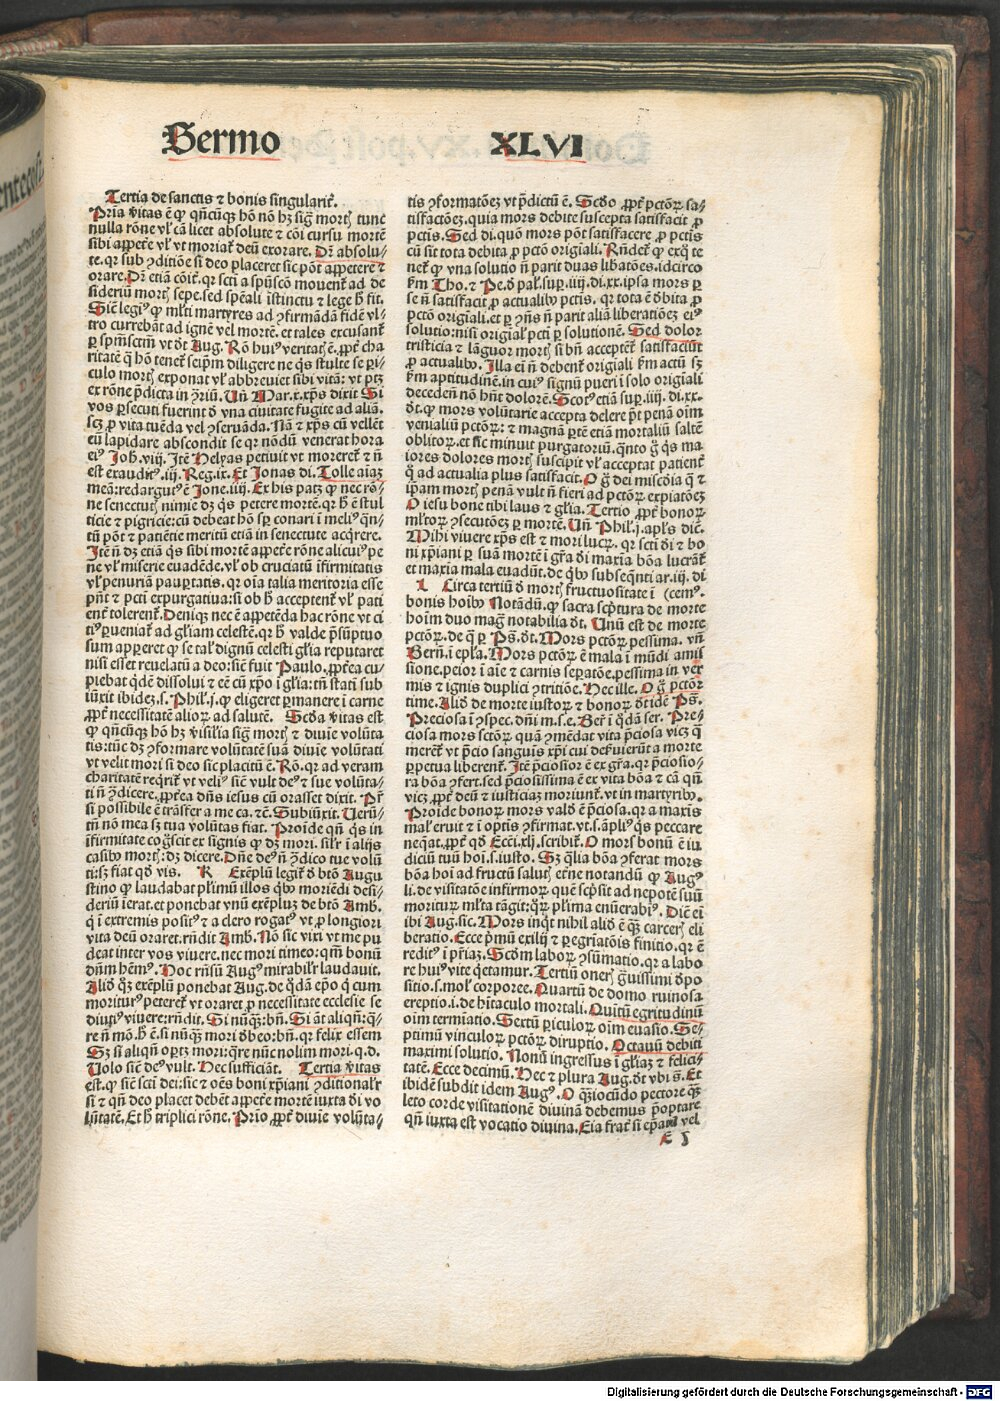 Sermo XLVI
Tertia de sanctis ⁊ bonis singularit̃.
P̃ria v̾itas ē ꝙ qñcūqꝫ hō nō hꝫ sig̃ mortꝭ tunc
nulla rōne vl̓ cā licet absolute ⁊ cōi cursu mortē
sibi appet̓e vl̓ vt moriat̃ deū exorare. Dr̃ absolu⸗
te. qꝛ sub ꝯditiōe si deo placeret sic pōt appetere ⁊
orare. Dr̃ etiā cōit̓. qꝛ scti a spūscō mouent̃ ad de
sideriū mortꝭ sepe. sed sp̄eali īstinctu ⁊ lege h̓ fit.
Sic̄ legit̃ ꝙ ml̓ti martyres ad ꝯfirmādā fidē vl̓⸗
tro currebāt ad ignē vel mortē. et tales excusant̃
ꝑ sp̄mscm̄ vt dt̓ Aug. Rō hui⁹ veritatꝭ ē. ꝓpt̓ cha
ritatē q̄ hō tenet̃ seip̄m diligere ne q̇s stulte se ꝑi⸗
culo mortꝭ exponat vl̓ abbreuiet sibi vitā: vt ptꝫ
ex rōne p̄dicta in ꝯ̓riū. Uñ Mar. x. xp̄s dixit Si
vos ꝑsecuti fuerint ī vna ciuitate fugite ad aliā.
scꝫ ꝓ vita tuēda vel ꝯseruāda. Nā ⁊ xp̄s cū vellēt
eū lapidare abscondit se qꝛ nōdū venerat hora
ei⁹ Joh̓. viij. Itē Helyas petiuit vt morereť ⁊ ñ
est exaudit⁹. iij. Reg. ix. Et Jonas di. Tolle aīaꝫ
meā: redargut⁹ ē Jone. iiij. Ex his patꝫ ꝙ nec rō⸗
ne senectutꝭ nimie dꝫ q̇s petere mortē. qꝛ h̓ ē stul
ticie ⁊ pigricie: cū debeat hō sp̄ conari ī meli⁹ q̄n⸗
tū pōt ⁊ patiētie meritū etiā in senectute acq̇rere.
Itē ñ dꝫ etiā q̇s sibi mortē appet̓e rōne alicui⁹ pe
ne vl̓ miserie euadēde. vl̓ ob cruciatū īfirmitatis
vl̓ penuriā pauꝑtatis. qꝛ oīa talia meritoria esse
pñt ⁊ pcti expurgatiua: si ob h̓ acceptent̃ vl̓ pati
ent̓ tolerent̃. Deniqꝫ nec ē appetēda hac rōne vt ci
ti⁹ ꝑueniat̃ ad gl̓iam celestē. qꝛ h̓ valde p̄sūptuo
sum appareret ꝙ se tal̓ dignū celesti gl̓ia reputaret
nisi esset reuelatū a deo: sic̄ fuit Paulo. ꝓpt̓ea cu⸗
piebat q̇dē dissolui ⁊ eē cū xp̄o ī gl̓ia: tñ stati sub
iūxit ibidē. s. Phil̓. j. ꝙ eligeret ꝑmanere ī carne
ꝓpt̓ necessitatē alioꝝ ad salutē. Scd̓a v̾itas est
ꝙ qñcūqꝫ hō hꝫ v̾isil̓ia sig̃ mortꝭ ⁊ diuīe volūta
tis: tūc dꝫ ꝯformare volūtatē suā diuīe volūtati
vt velit mori si deo sic placitū ē. Rō. qꝛ ad veram
charitatē req̇rit̃ vt velit̃ sic̄ vult de⁹ ⁊ sue volūta⸗
ti ñ ꝯ̓dicere. ꝓpt̓ea dn̄s iesus cū orasset dixit. Pr̄
si possibile ē trāsfer a me ca. ⁊c̄. Subiūxit. Uerū⸗
tn̄ nō mea sꝫ tua volūtas fiat. Proīde qñ q̇s in
īfirmitate cog̃scit ex signis ꝙ dꝫ mori. sil̓r ī alijs
casib⁹ mortꝭ: dꝫ dicere. Dñe de⁹ ñ ꝯ̓dico tue volū
ti: sꝫ fiat qd̓ vis. R Exēplū legit̃ d̓ btō Augu
stino ꝙ laudabat pl̓imū illos qb⁹ moriēdi desi⸗
deriū ierat. et ponebat vnū exēpluꝫ de btō Amb.
q̇ ī extremis posit⁹ ⁊ a clero rogat⁹ vt ꝓ longiori
vita deū oraret. rn̄dit Amb. Nō sic vixi vt me pu
deat inter vos viuere. nec mori timeo: qm̄ bonū
dn̄m hēm⁹. Hoc rn̄sū Aug⁹ mirabilr̓ laudauit.
Aliō qꝫ exēplū ponebat Aug. de q̇dā ep̄o q̇ cum
moritur⁹ peteret̃ vt oraret ꝓ necessitate ecclesie se
diuti⁹ viuere: rn̄dit. Si nūqꝫ: bñ. Si āt aliqñ: q̄⸗
re ñ mō. h̓ ē. si nūqꝫ mori d̓beo: bñ. qꝛ felix essem
Sꝫ si aliqñ oꝑtꝫ mori: q̄re nūc nolim mori. q. d.
Uolo sic̄ de⁹ vult. Hec sufficiāt. Tertia v̾itas
est. ꝙ sic̄ scti dei: sic ⁊ oēs boni xp̄iani ꝯditionalr̓
si ⁊ qñ deo placet debēt appet̓e mortē iuxta d̓i vo
lūtatē. Et h̓ triplici rōne. Prīo ꝓpt̓ diuīe volūta⸗
tis ꝯformatōeꝫ vt p̄dictū ē. Scd̓o ꝓpt̓ pctōꝝ sa⸗
tisfactōeꝫ. quia mors debite suscepta satisfacit ꝓ
pctis. Sed di. quō mors pōt satisfacere ꝓ pctis
cū sit tota debita ꝓ pctō origiali. Rn̄det̃ ꝙ exq̇ te
net̃ ꝙ vna solutio ñ parit duas libatōes. idcirco
ẜm Tho. ⁊ Pe. d̓ pal̓. suꝑ. iiij. di. xx. ipsa mors ꝑ
se ñ satisfacit ꝓ actualib⁹ pctis. qꝛ tota ē d̓bita ꝓ
pctō origiali. et ꝑ ꝯñs ñ parit aliā liberatiōeꝫ ei⁹
solutio: nisi original̓ pcti ꝑ solutionē. Sed dolor
tristicia ⁊ lāguor mortꝭ si bñ accepteť satisfaciūt
ꝓ actualib⁹. Illa ei ñ debent̃ origiali ẜm actū sꝫ
ẜm aptitudinē. in cui⁹ signū pueri ī solo origiali
decedētes nō hn̄t dolorē. Scot⁹ etiā suꝑ. iiij. di. xx.
dt̓. ꝙ mors volūtarie accepta delere pōt penā oīm
venialiū pctōꝝ: ⁊ magnā ꝑtē etiā mortaliū saltē
oblitoꝝ. et sic minuit purgatoriū. q̇nto g̓ q̇s ma
iores dolores mortꝭ suscipit vl̓ acceptat patient̓
ꝙ ad actualia plus satisfacit. O g̓ dei mīscōia q̄ ⁊
ip̄am mortꝭ penā vult ñ fieri ad pctōꝝ expiatōeꝫ
O iesu bone tibi laus ⁊ gl̓ia. Tertio ꝓpt̓ bonoꝝ
ml̓toꝝ ꝯsecutōeꝫ ꝑ mortē. Uñ Phil̓. j. apl̓s dic̄.
Mihi viuere xp̄s est ⁊ mori lucꝝ. qꝛ scti d̓i ⁊ bo
ni xp̄iani ꝑ suā mortē ī gr̄a d̓i maxīa bōa lucrāt̃
et maxīa mala euadūt. de qb⁹ subseq̄nti ar. iij. di
L Circa tertiū d̓ mortꝭ fructuositate ī (cem⁹.
bonis hoīb⁹ Notādū. ꝙ sacra scp̄tura de morte
hoīm duo mag̃ notabilia dt̓. Unū est de morte
pctōꝝ. de q̄ ꝑ Ps̄. dt̓. Mors pctōꝝ pessima. vñ
Bern̄. ī epl̓a. Mors pctōꝝ ē mala ī mūdi amis
sione. peior ī aīe ⁊ carnis sepatōe. pessima in ver
mis ⁊ ignis duplici ꝯtritiōe. Hec ille. O g̓ pctōr
time. Aliō de morte iustoꝝ ⁊ bonoꝝ dt̓ idē Ps̄.
Preciosa ī ꝯspec. dn̄i m. s. e. Ber̄. ī q̇dā ser. Pre⸗
ciosa mors sctōꝝ quā ꝯmēdat vita p̄ciosa viceꝫ q̄
mereť vt p̄cio sanguis xp̄i cui deseruierūt a morte
ꝑpetua liberent̃. Itē p̄ciosior ē ex gr̄a. qꝛ p̄ciosio⸗
ra bōa ꝯfert. sed p̄ciosissima ē ex vita bōa ⁊ cā qñ
viceꝫ ꝓpt̓ deū ⁊ iusticiaꝫ moriunt̃. vt in martyrib⁹.
Proīde bonoꝝ mors vald̓ ē p̄ciosa. qꝛ a maxis
mal̓ eruit ⁊ ī optīs ꝯfirmat. vt. s. apl̓i⁹ q̇s peccare
neq̄at. ꝓpt̓ qd̓ Ecc̄i. xlj. scribit̃. O mors bonū ē iu
diciū tuū hoī. s. iusto. Sꝫ q̄lia bōa ꝯferat mors
bōa hoī ad fructū salutꝭ et̓ne notandū ꝙ Aug⁹
li. de visitatōe infirmoꝝ quē scp̄sit ad nepotē suū
morituꝝ ml̓ta tāgit: q̄ꝝ pl̓ima enūerabi⁹. Dic̄ ei
ibi Aug. sic. Mors inq̇t nihil aliō ē qꝫ carcerꝭ eli
beratio. Ecce p̄mū exilij ⁊ ꝑegriatōis finitio. qꝛ ē
redit⁹ ī pr̄iaꝫ. Scd̓m laboꝝ ꝯsūmatio. qꝛ a labo
re hui⁹ vite q̇etamur. Tertiū onerꝭ g̃uissimi d̓po
sitio. s. mol̓ corporee. Quartū de domo ruinosa
ereptio. i. de hītaculo mortali. Quītū egritudinū
oīm termīatio. Sextū ꝑiculoꝝ oīm euasio. Se⸗
ptimū vinculoꝝ pctōꝝ diruptio. Octauū debiti
maximi solutio. Nonū ingressus ī gl̓iaꝫ ⁊ felici⸗
tatē. Ecce decimū. Hec ⁊ plura Aug. dt̓ vbi s̄. Et
ibidē subdit idem Aug⁹. O q̄ꝫiocūdo pectore qꝫ
leto corde visitationē diuinā debemus p̄optare
qñ iuxta est vocatio diuina. Eia frat̓ si ep̄aml vel
E 5
Digitalisierung gefördert durch die Deutsche Forschungsgemeinschaft - DFG